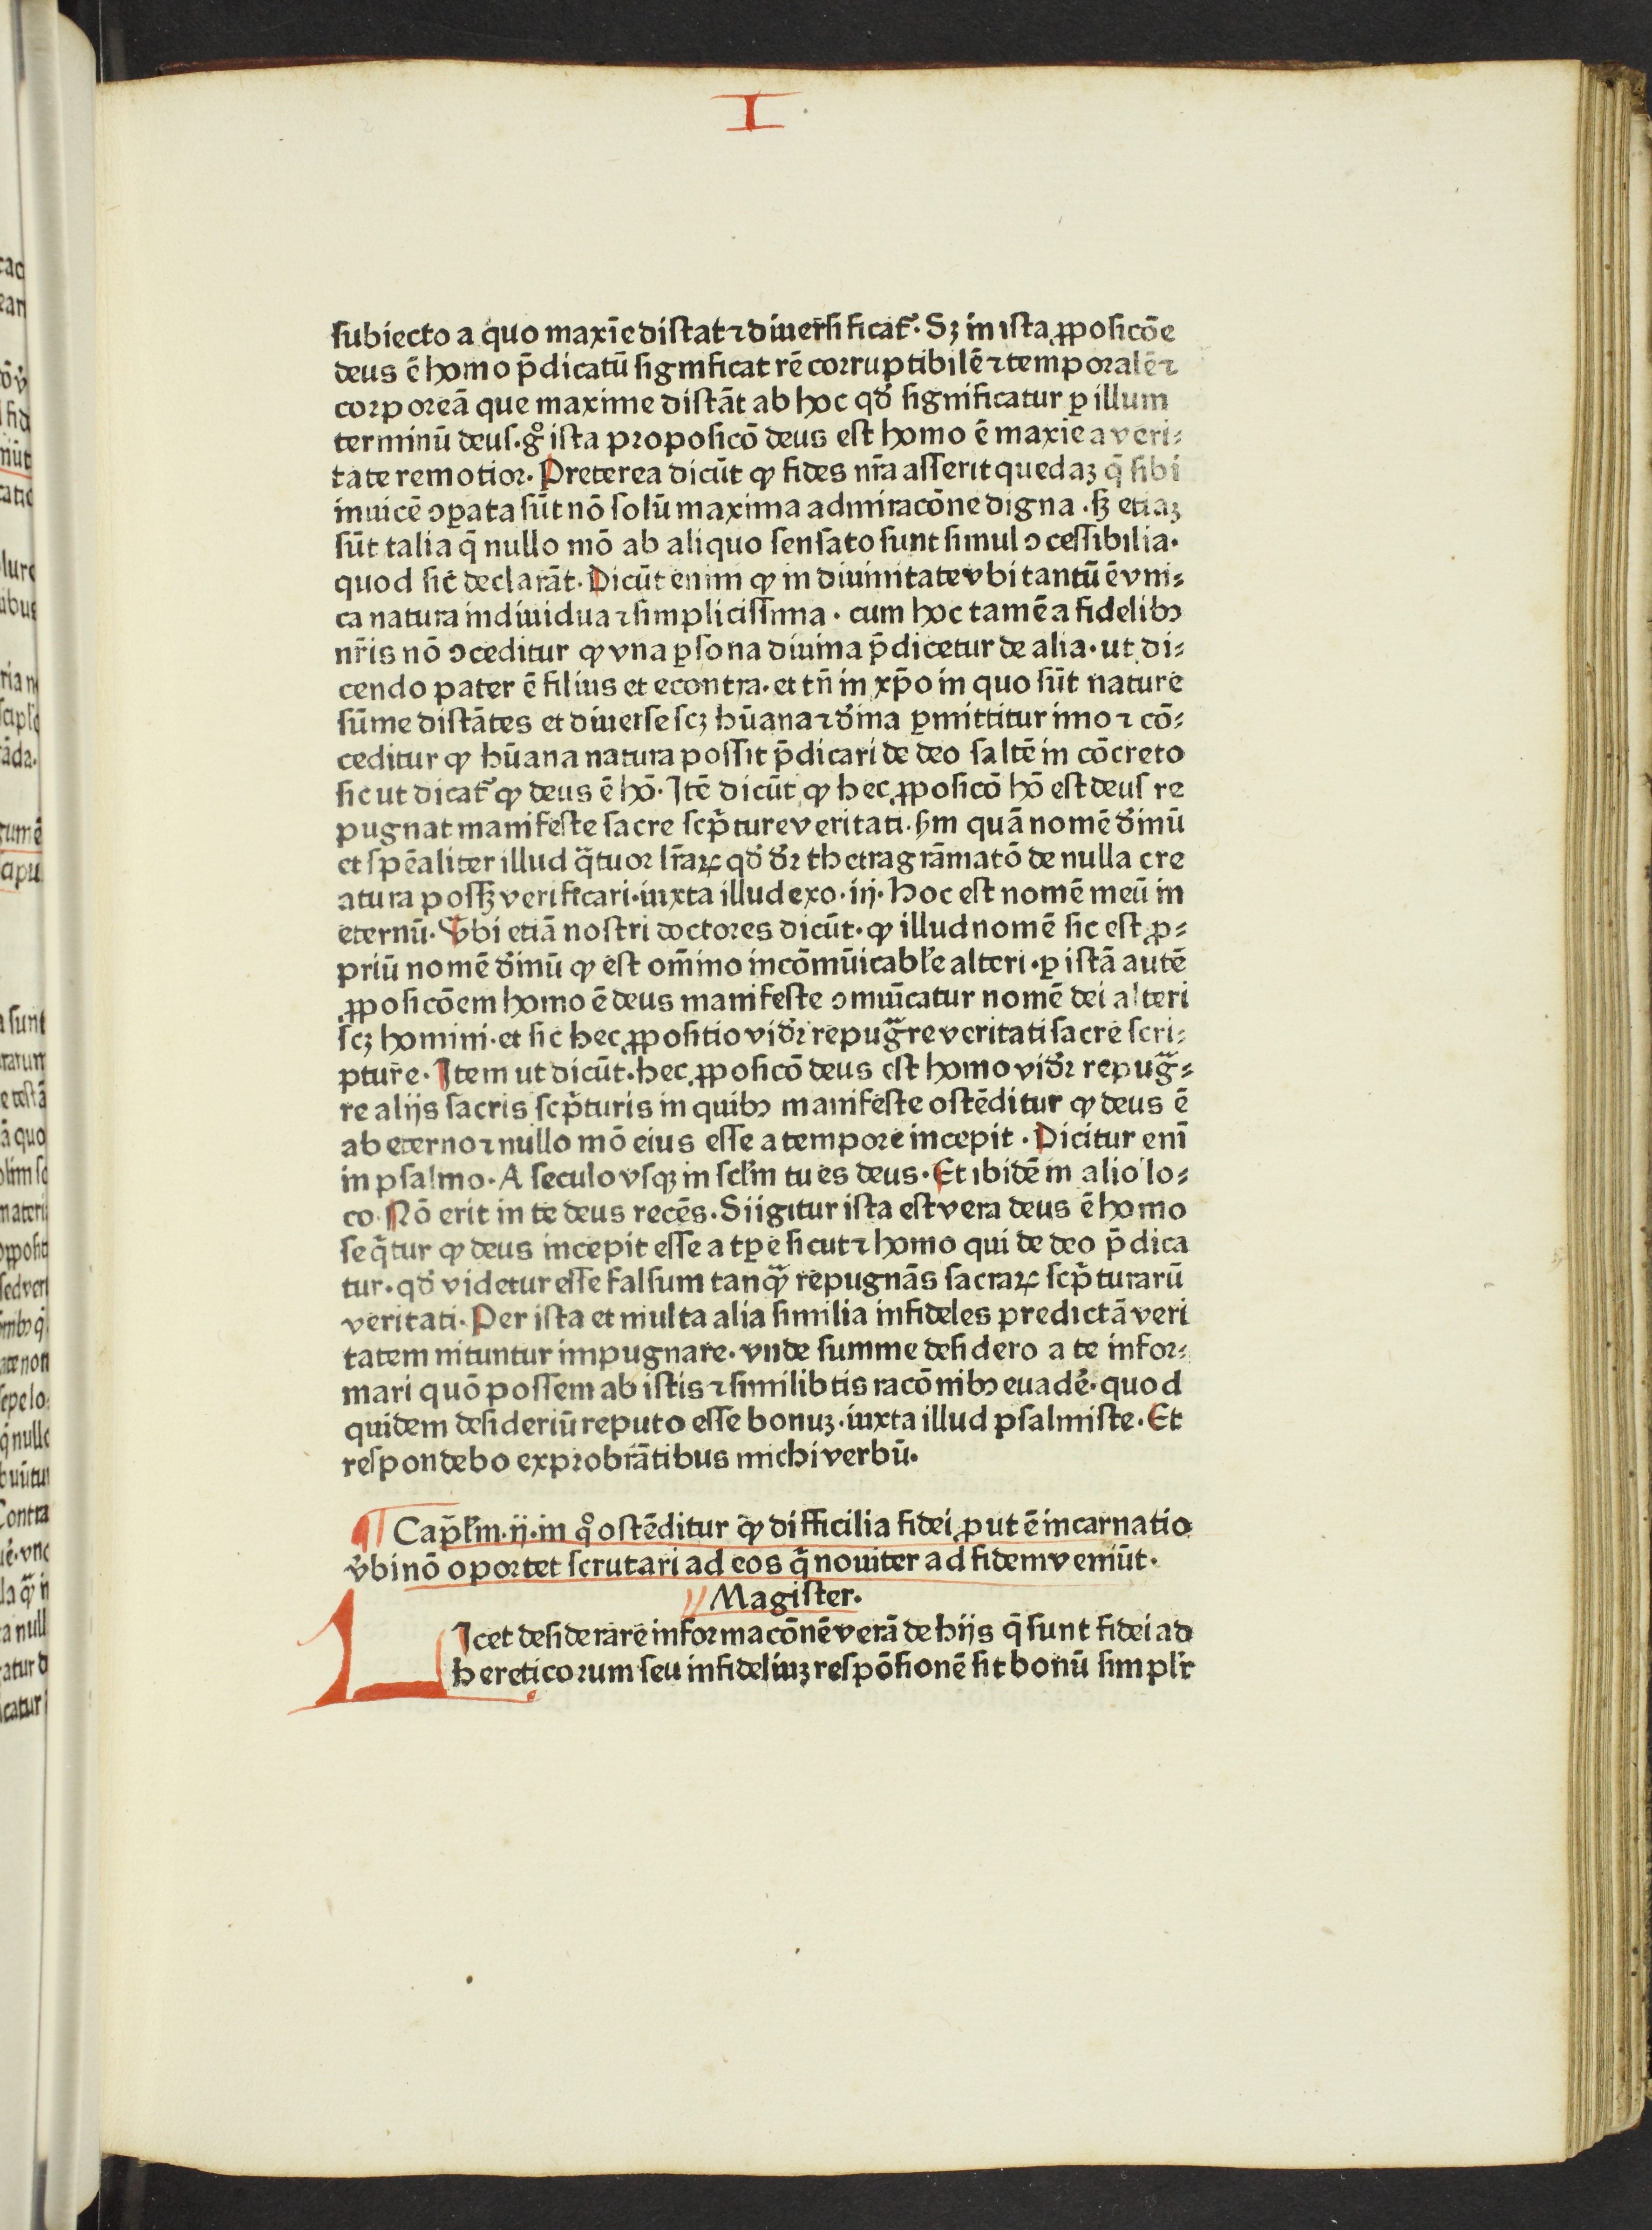 I
subiecto a quo maxīe distat ⁊ diuersificat᷑. Sꝫ in ista ꝓposicōe
deus ē homo p̄dicatū significat rē corruptibilē ⁊ temporalē ⁊
corporeā que maxime distāt ab hoc qd̛ significatur ꝑ illum
terminū deus. gͦ ista proposicō deus est homo ē maxīe a veri-
tate remotior. Preterea dicūt ꝙ fides nr̄a asserit quedaꝫ q̄ sibi
inuicē ꝯꝑata sūt nō solū maxima admiracōne digna. sꝫ etiaꝫ
sūt talia q̄ nullo mō ab aliquo sensato sunt simul ꝯcessibilia.
quod sic declarāt. Dicūt enim ꝙ in diuinitate vbi tantū ē vni-
ca natura indiuidua ⁊ simplicissima. cum hoc tamē a fidelibꝰ
nr̄is nō ꝯceditur ꝙ vna ꝑsona diuina p̄dicetur de alia. ut di-
cendo pater ē filius et econtra. et tn̄ in xp̄o in quo sūt nature
sūme distātes et diuerse scꝫ hūana ⁊ d̛ina ꝑmittitur imo ⁊ cō-
ceditur ꝙ hūana natura possit p̄dicari de deo saltē in cōcreto
sic ut dicat᷑ ꝙ deus ē hō. Itē dicūt ꝙ hec ꝓposicō hō est deus re
pugnat manifeste sacre scp̄ture veritati. ẜm quā nomē d̛inū
et spēaliter illud q̄tuor lr̄aꝝ qd̛ d̛r thetragrāmatō de nulla cre
atura possꝫ verificari. iuxta illud exo. iij. hoc est nomē meū in
eternū. Vbi etiā nostri doctores dicūt. ꝙ illud nomē sic est ꝓ-
priū nomē d̛inū ꝙ est om̄ino incōmūicabꝉe alteri. ꝑ istā autē
ꝓposicōem homo ē deus manifeste ꝯmuīcatur nomē dei alteri
scꝫ homini. et sic hec ꝓpositio vid̛r repugᷓre veritati sacre scri-
pture. Item ut dicūt. hec ꝓposicō deus est homo vid̛r repugᷓ-
re alijs sacris scp̄turis in quibꝰ manifeste ostēditur ꝙ deus ē
ab eterno ⁊ nullo mō eius esse a tempore incepit. Dicitur enī
in psalmo. A seculo vsqꝫ in scꝉm tu es deus. Et ibidē in alio lo-
co. Nō erit in te deus recēs. Si igitur ista est vera deus ē homo
seq̄tur ꝙ deus incepit esse a tꝑe sicut ⁊ homo qui de deo p̄dica
tur. qd̛ videtur esse falsum tanqᷓ repugnās sacraꝝ scp̄turarū
veritati. Per ista et multa alia similia infideles predictā veri
tatem nituntur impugnare. vnde summe desidero a te infor-
mari quō possem ab istis ⁊ similibus racōnibꝰ euadē. quod
quidem desideriū reputo esse bonuꝫ. iuxta illud psalmiste. Et
respondebo exprobrātibus michi verbū.
¶ Cap̄ꝉm. ij. in qͦ ostēditur ꝙ difficilia fidei ꝓut ē incarnatio
v̛bi nō oportet scrutari ad eos q̄ nouiter ad fidem veniūt.
Magister.
LIcet desiderare informacōnē verā de hijs q̄ sunt fidei ad
hereticorum seu infideliuꝫ respōsionē sit bonū simplr̄